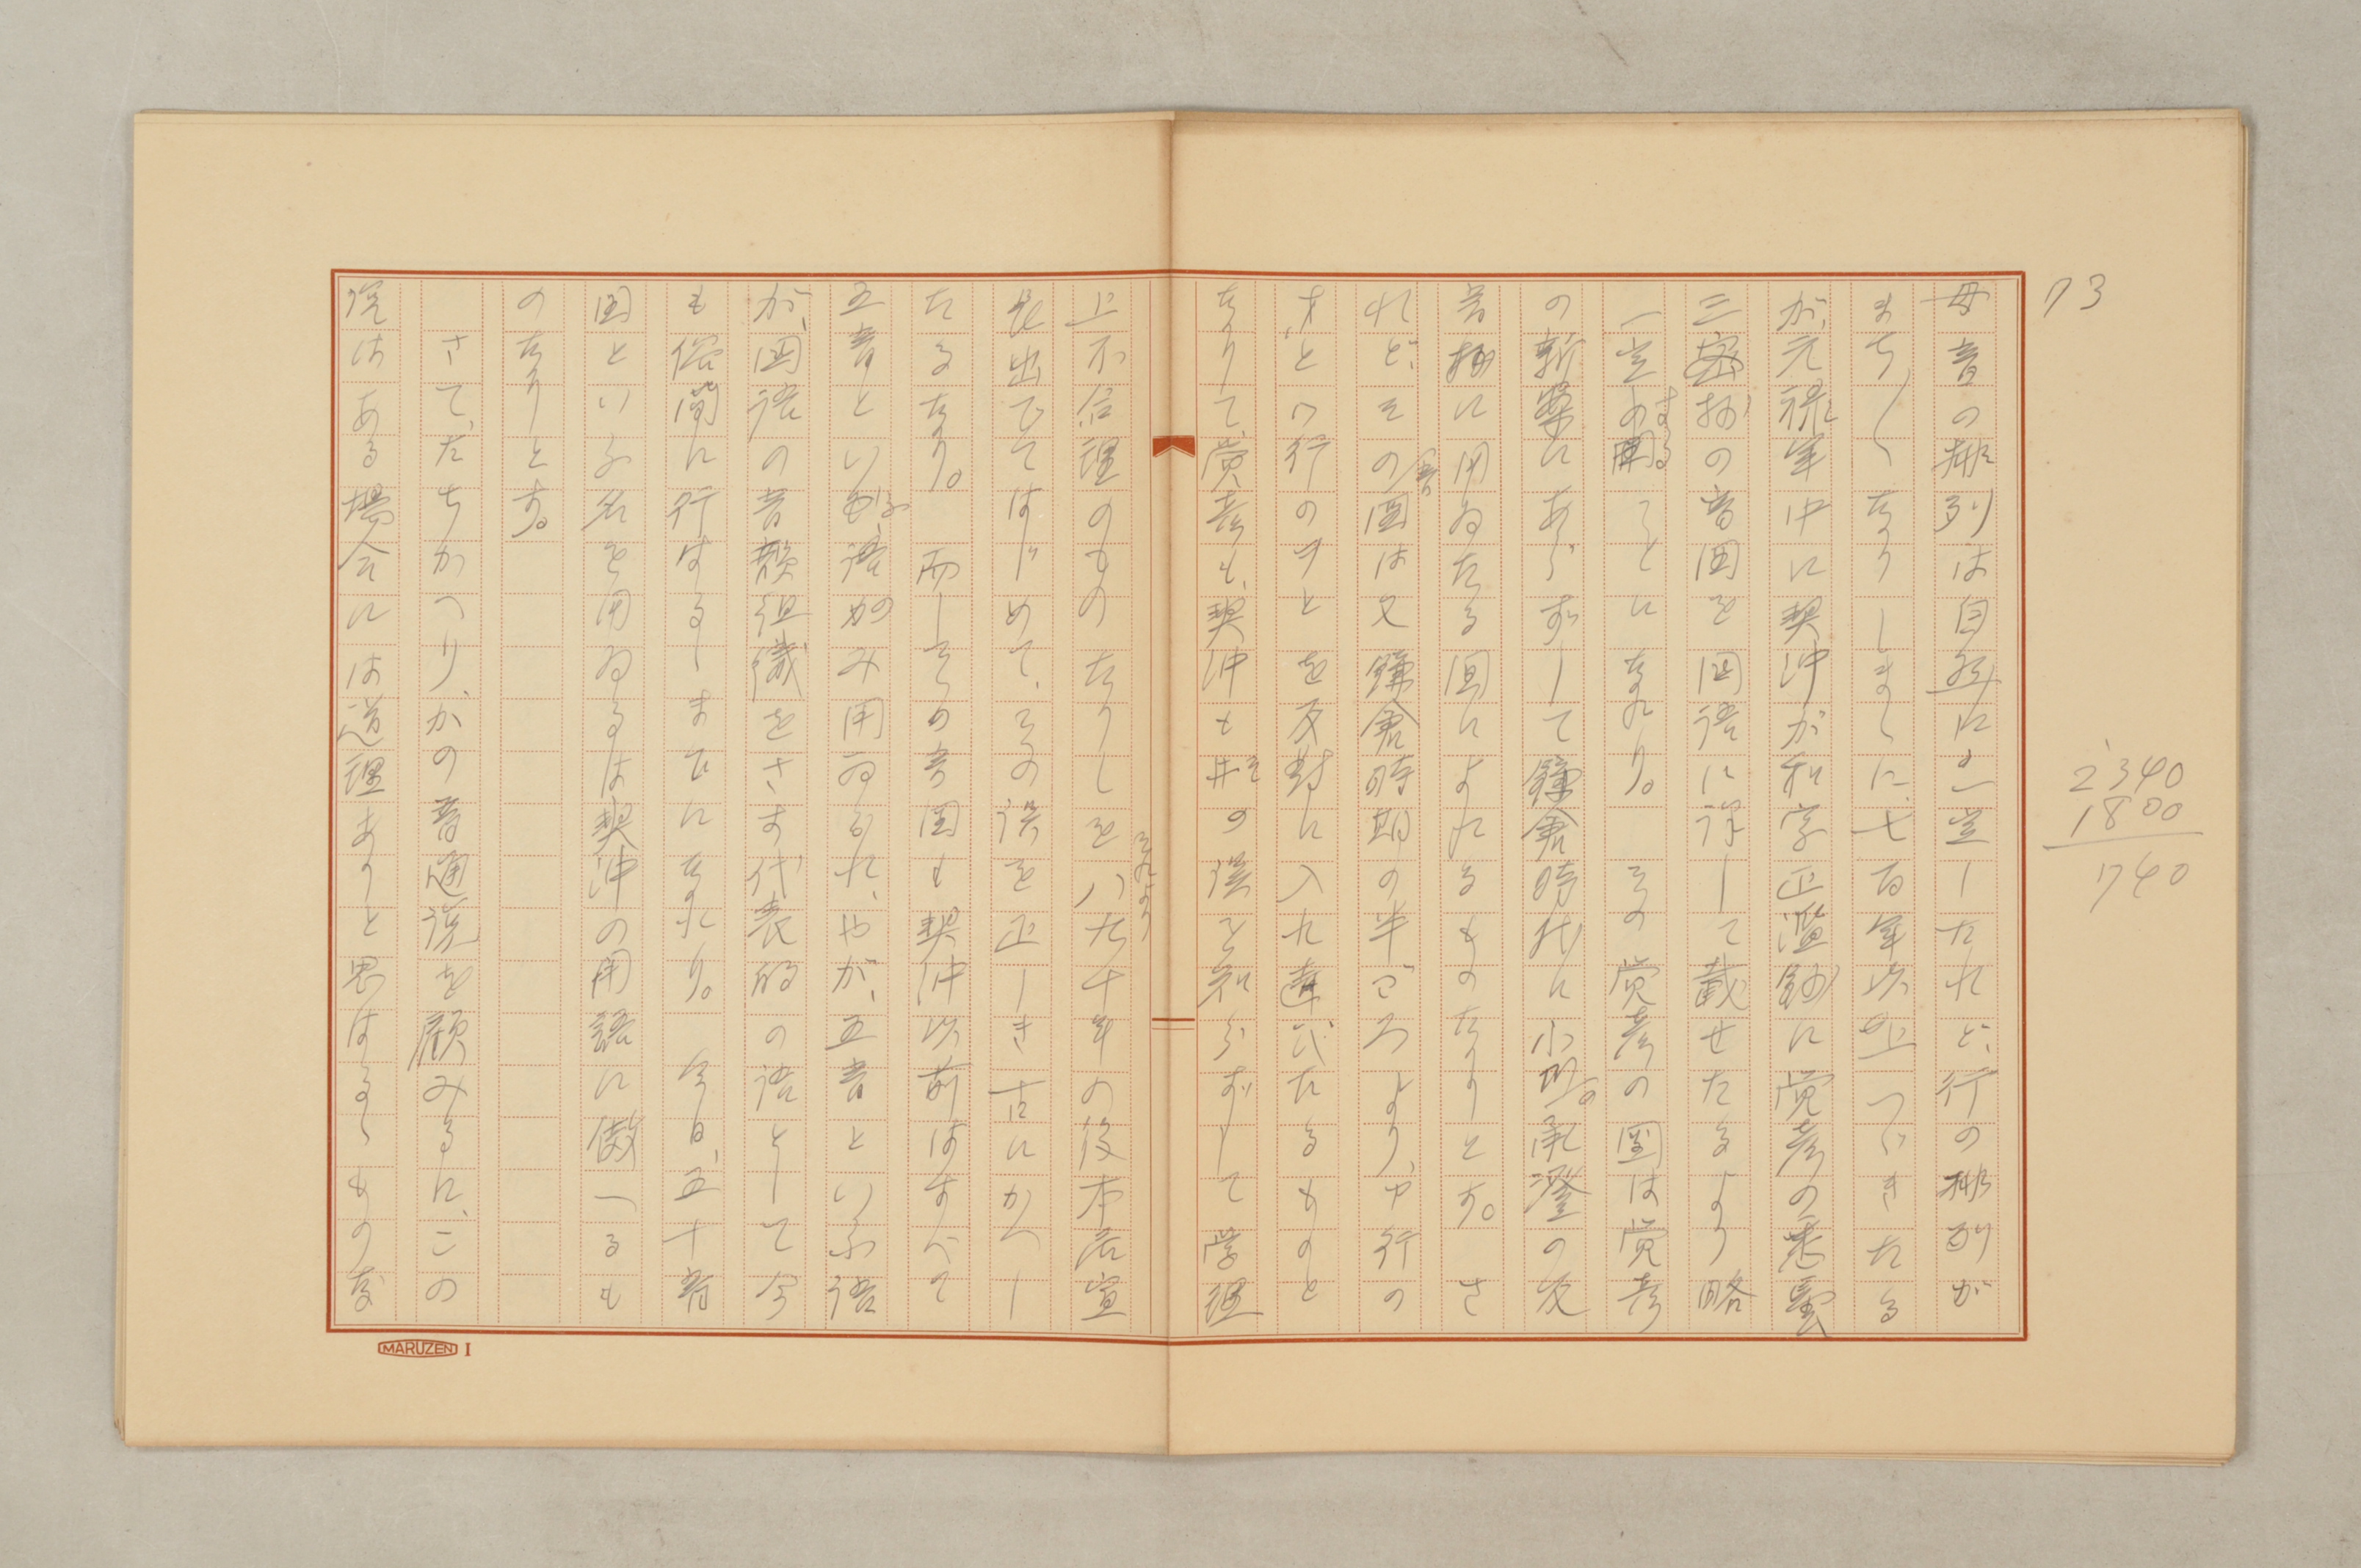 73
母音の排列は自然に一定したれど、行の排列が
まち〱なりしまゝに、七百年以上つゞきたる
が、元禄年中に契沖が和字正濫鈔に覚彦の悉曇
三密鈔の音図を国語に訳して載せたるより略
一定することになれり。その覚彦の図は覚彦
の新案にあらずして鎌倉時代に小川の承澄の反
音抄に用ゐたる図によれるものなりとす。さ
れど、その音図は又鎌倉時期の半ごろより、ヤ行の
オとワ行のヲとを反対に入れ違ひたるものと
なりて、覚彦も、契沖も其の誤を知らずして学理
上不合理のものなりしをそれより八九十年の後本居宣
長出でてはじめて、その誤を正しき古にかへし
たるなり。而してその音図も契沖以前はすべて
五音といふ語のみ用ゐられ、やが、五音といふ語
が、国語の音韻組織をさす代表的の語として今
も俗間に行はるゝまでになれり。今日、五十音
図といふ名を用ゐるは契沖の用語に倣へるも
のなりとす。
さて、たちかへり、かの普通説を顧みるに、この
説はある場合には道理ありと思はるゝものな
2340
1800
1740
MARUZEN I